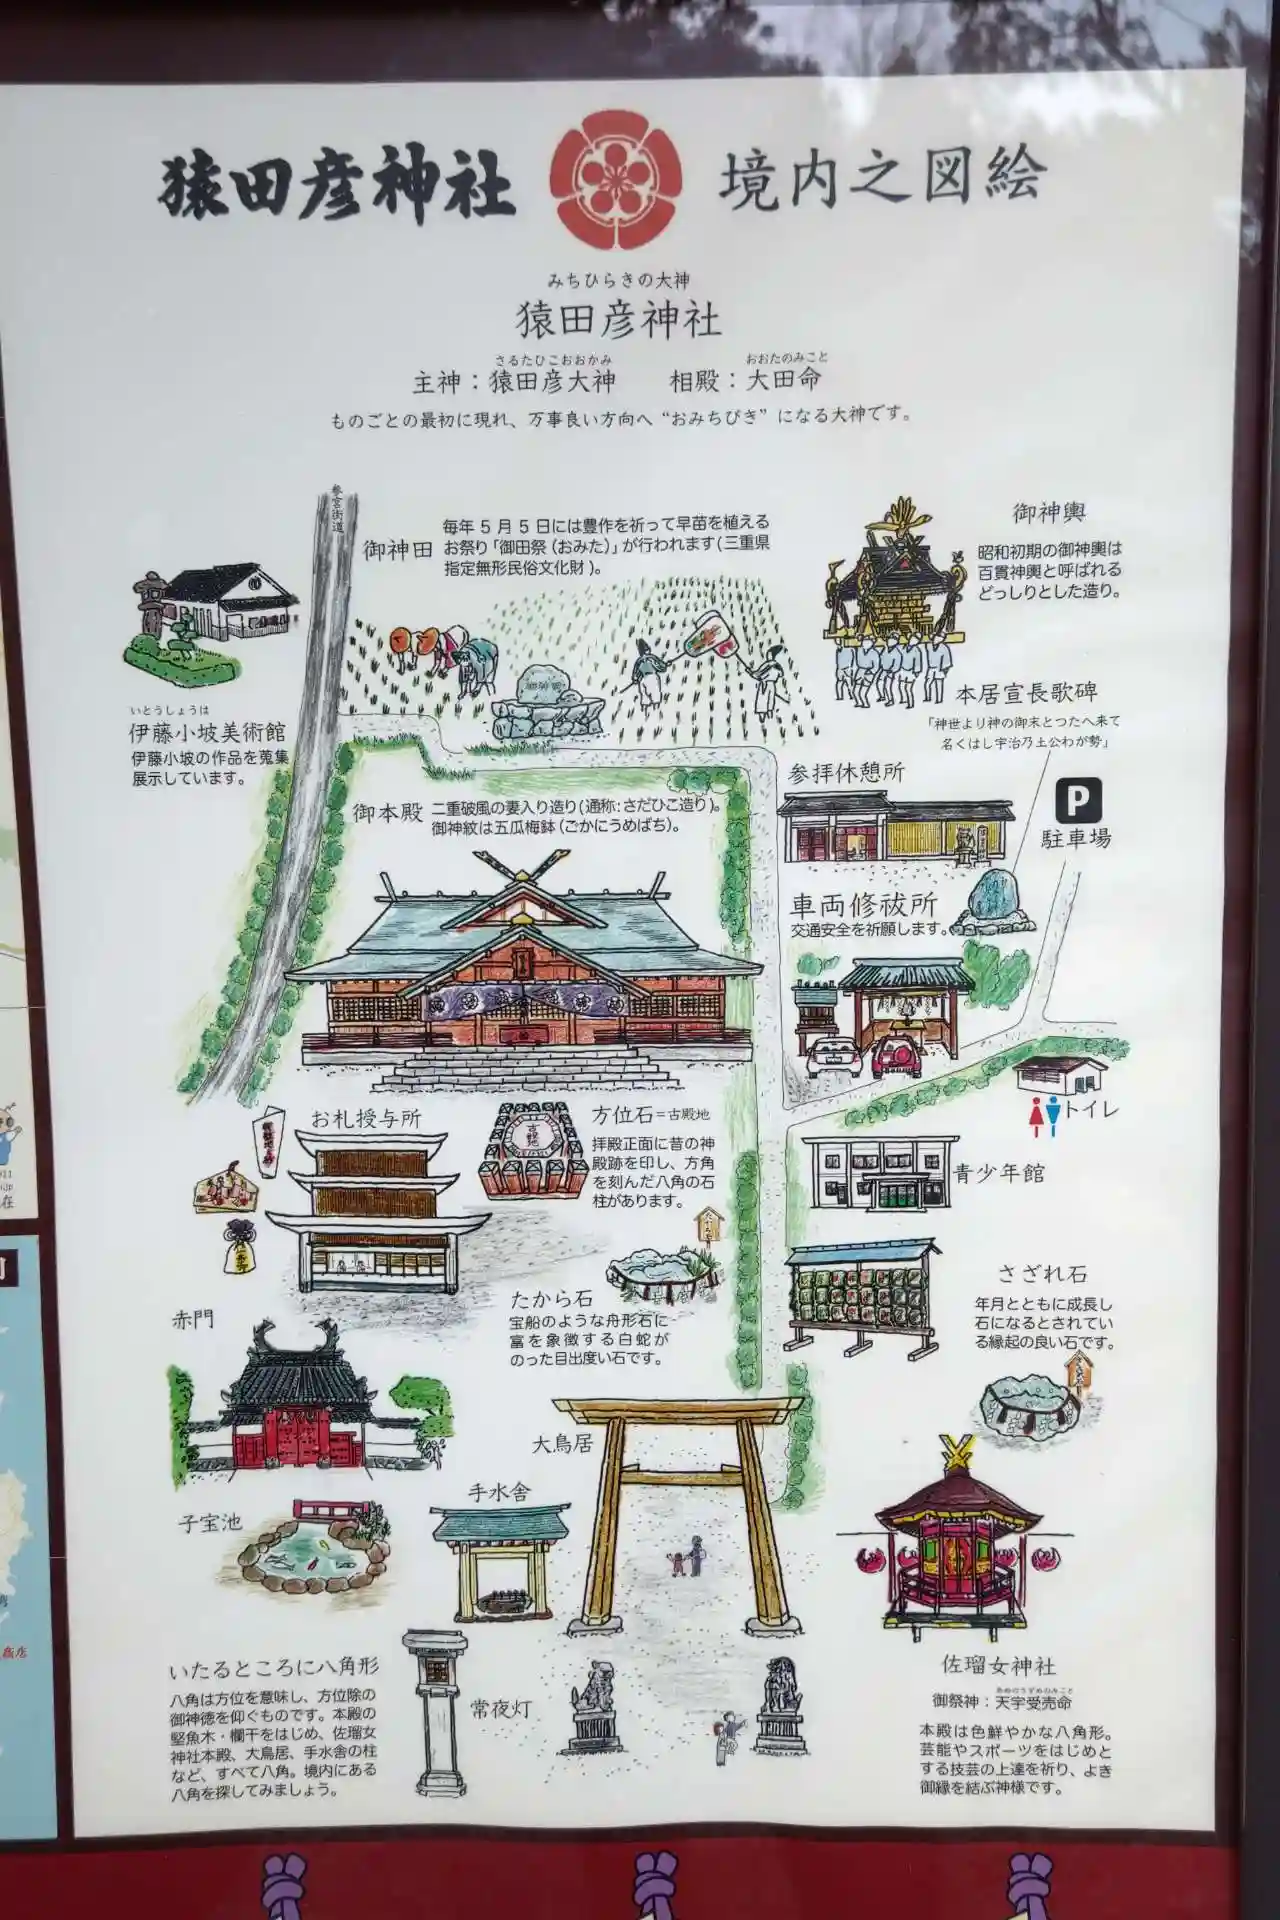 猿田彦神社 境内之図絵
みちひらきの大神
猿田彦神社
さるたひこおおかみ おおたのみこと
主神：猿田彦大神 相殿：大田命
ものごとの最初に現れ、万事良い方向へ“おみちびき”になる大神です。
参宮街道
御神田
毎年5月5日には豊作を祈って早苗を植える
お祭り「御田祭（おみた）」が行われます(三重県
指定無形民俗文化財)。
御神輿
昭和初期の御神輿は
百貫神輿と呼ばれる
どっしりとした造り。
本居宣長歌碑
「神世より神の御末とつたへ来て
名くはし宇治乃土公わが勢」
いとうしょうは
伊藤小坡美術館
伊藤小坡の作品を蒐集
展示しています。
御本殿
二重破風の妻入り造り(通称:さだひこ造り)。
御神紋は五瓜梅鉢(ごかにうめばち)。
参拝休憩所
P
駐車場
車両修祓所
交通安全を祈願します。
お札授与所
方位石=古殿地
拝殿正面に昔の神
殿跡を印し、方角
を刻んだ八角の石
柱があります。
古殿地
トイレ
青少年館
たから石
宝船のような舟形石に
富を象徴する白蛇が
のった目出度い石です。
さざれ石
年月とともに成長し
石になるとされてい
る縁起の良い石です。
赤門
大鳥居
手水舎
子宝池
いたるところに八角形
八角は方位を意味し、方位除の
御神徳を仰ぐものです。本殿の
堅魚木・欄干をはじめ、佐瑠女
神社本殿、大鳥居、手水舎の柱
など、すべて八角。境内にある
八角を探してみましょう。
常夜灯
佐瑠女神社
あめのうずめのみこと
御祭神：天宇受売命
本殿は色鮮やかな八角形。
芸能やスポーツをはじめと
する技芸の上達を祈り、よき
御縁を結ぶ神様です。